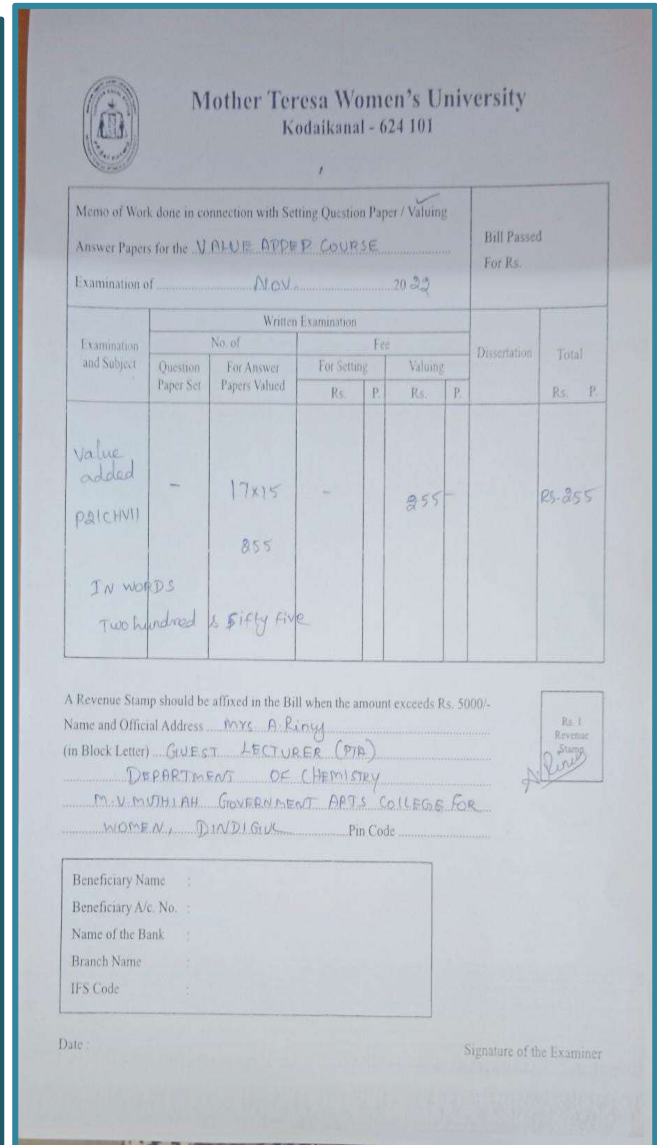 Mother Teresa Women's University
Kodaikanal - 624 101
Memo of Work done in connection with Setting Question Paper / Valuing
Answer Papers for the VALUE ADDED COURSE
Examination of Nov. 2022
Bill Passed
For Rs.
Examination and Subject
Written Examination
No. of
Fee
Question Paper Set
For Answer Papers Valued
For Setting
Valuing
Rs. P.
Rs. P.
Dissertation
Total
Rs. P.
Value added
P21CHV11
-
17x15
255
-
255-
RS-255
IN WORDS
Two hundred & Fifty Five
A Revenue Stamp should be affixed in the Bill when the amount exceeds Rs. 5000/-
Name and Official Address Mrs A. Rincy
(in Block Letter) GUEST LECTURER (PTA)
DEPARTMENT OF CHEMISTRY
M.V. MUTHIAH GOVERNMENT ARTS COLLEGE FOR
WOMEN, DINDIGUL Pin Code
Rs. 1
Revenue
Stamp
A. Rincy
Beneficiary Name :
Beneficiary A/c. No. :
Name of the Bank :
Branch Name :
IFS Code :
Date :
Signature of the Examiner